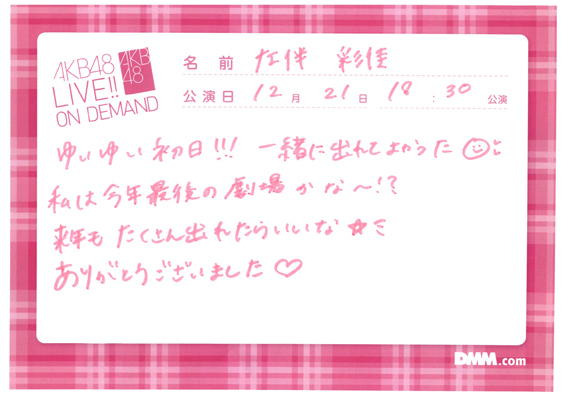 AKB48
LIVE!!
ON DEMAND
AKB
48
名前 左伴 彩佳
公演日 12月 21日 18:30 公演
ゆいゆい初日!!! 一緒に出れてよかった
私は今年最後の劇場かな〜!?
来年もたくさん出れたらいいな☆ミ
ありがとうございました♡
DMM.com